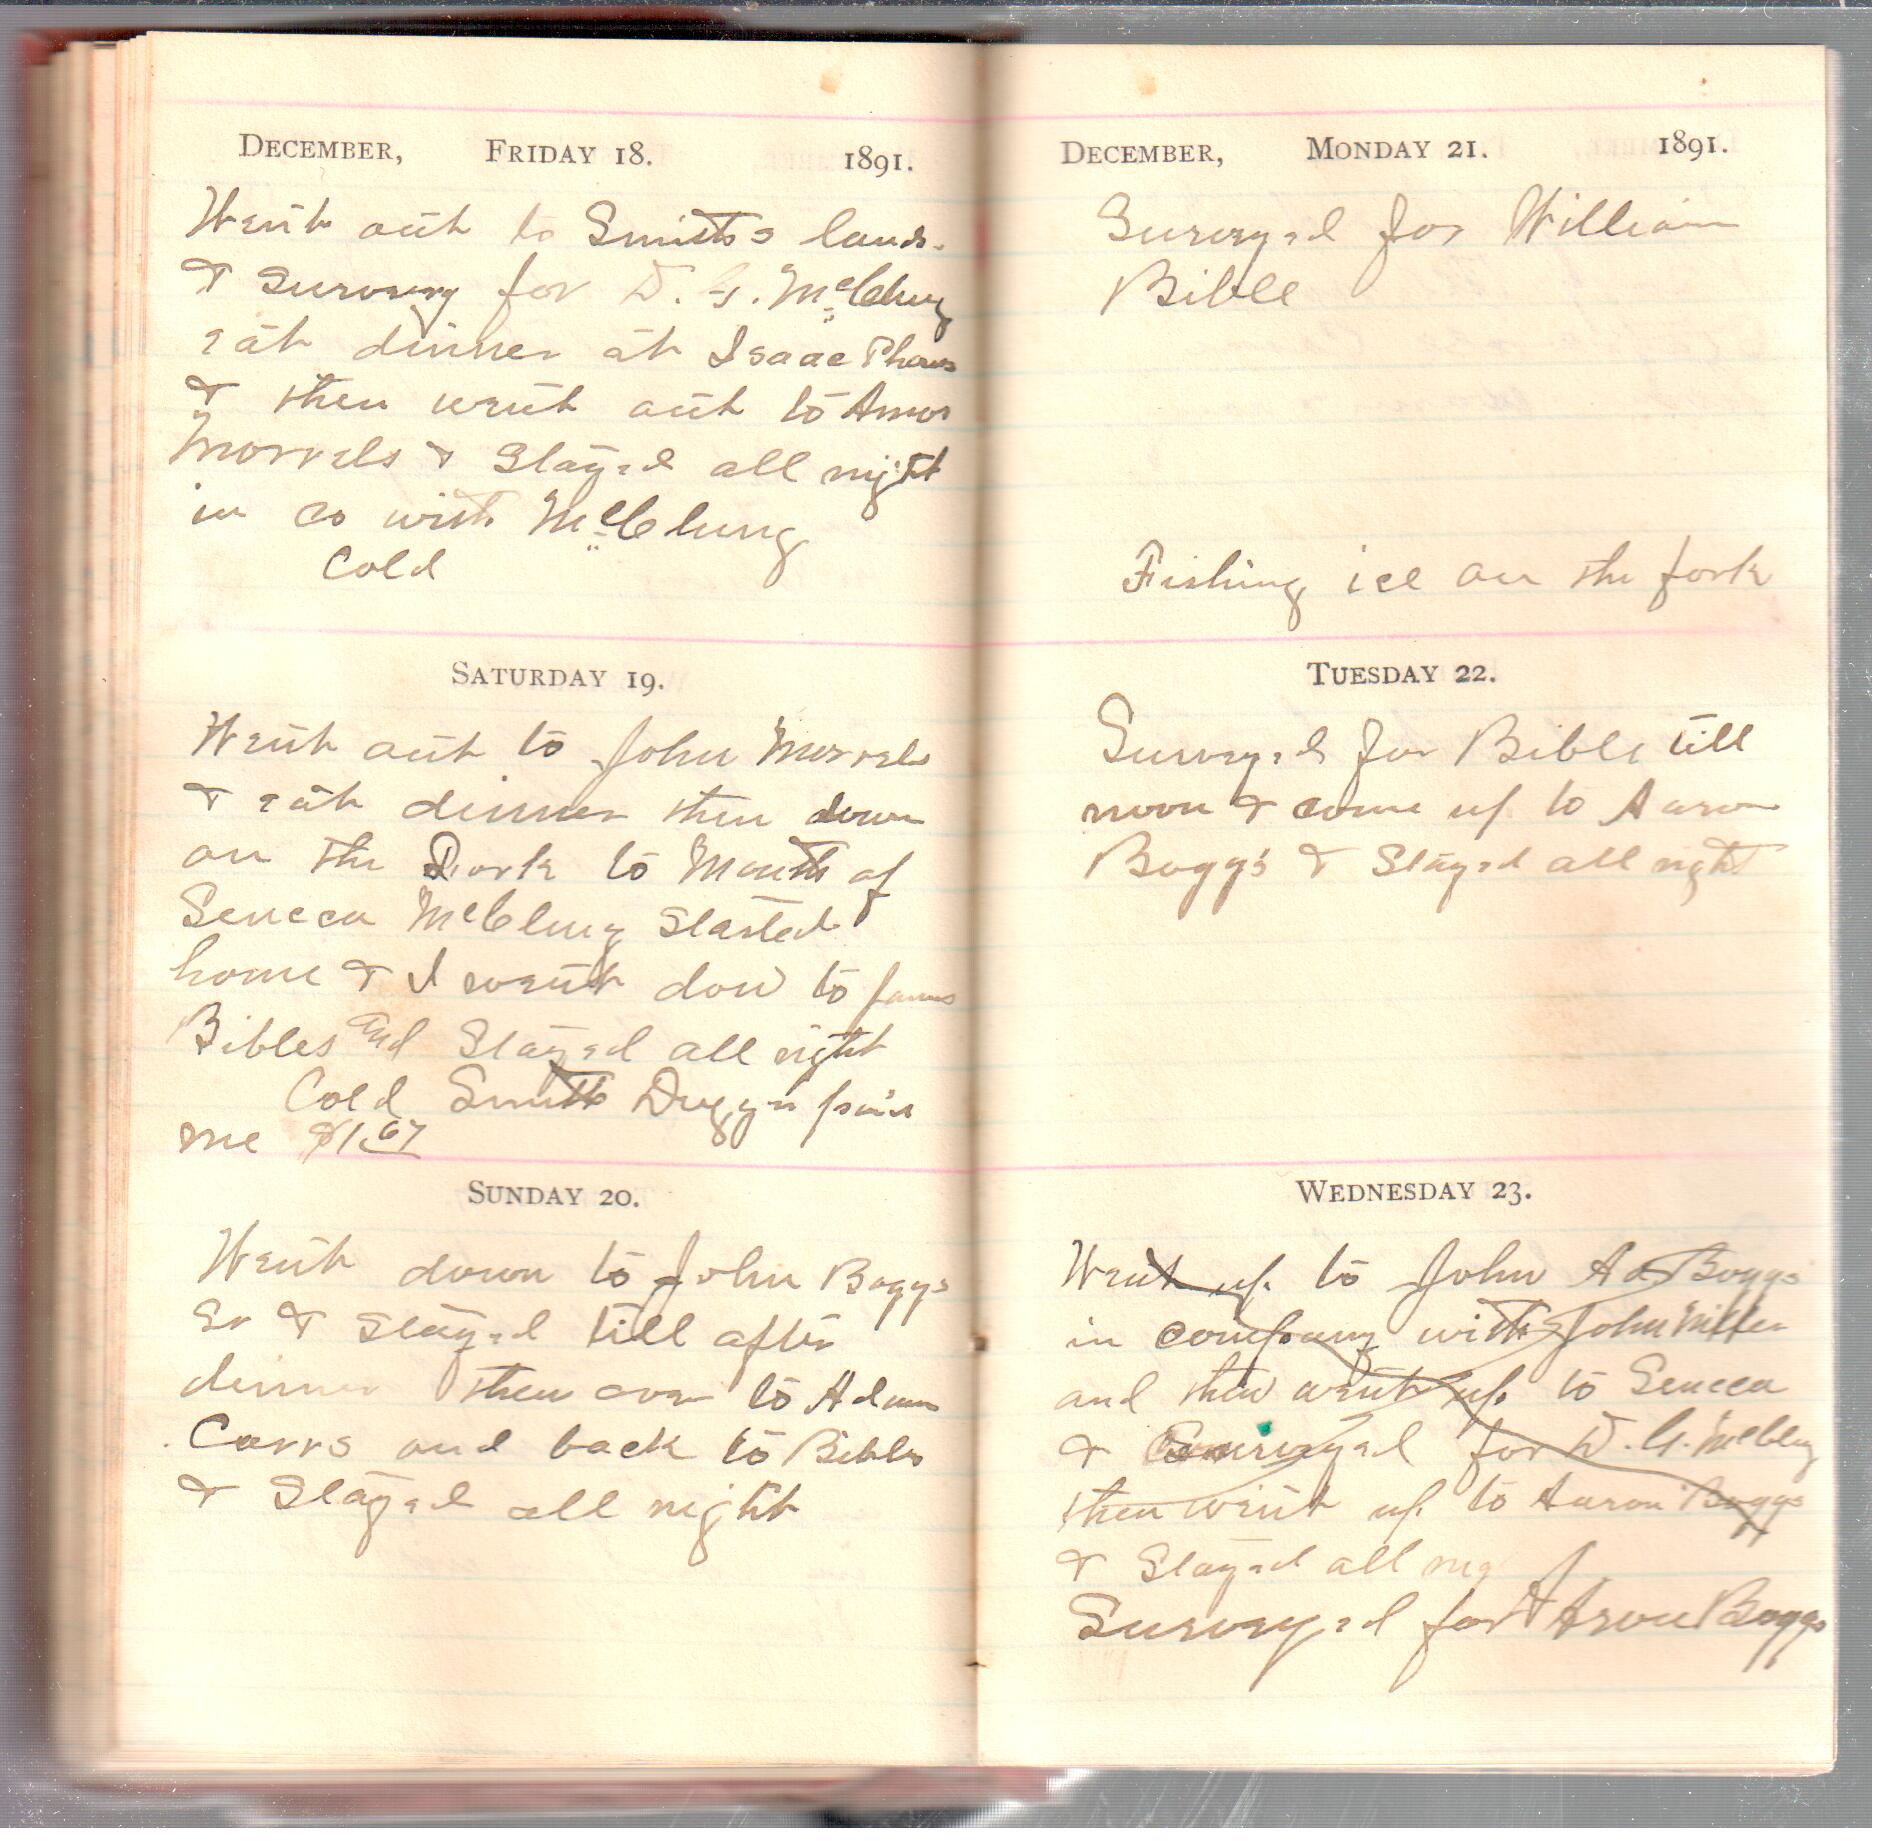 DECEMBER, FRIDAY 18. 1891.
Went out to Smiths lands
& Survey for D. G. McClung
eat dinner at Isaac
& then went out to Amos
Morrels & Stayed all night
in co with McClung
Cold
SATURDAY 19.
Went out to John Morrels
& eat dinner then down
on the Fork to Mouth of
Seneca McClung Started
home & I went dow to
Bibles and Stayed all night
Cold Smith Duggn paid
me $1.67
SUNDAY 20.
Went down to John Boggs
Sr & Stayed till after
dinner then over to Adam
Carrs and back to Bibles
& Stayed all night
DECEMBER, MONDAY 21. 1891.
Surveyed for William
Bible
Fishing ice on the fork
TUESDAY 22.
Surveyed for Bible till
noon & come up to Aaron
Boggs & Stayed all night
WEDNESDAY 23.
Went up to John A Boggs
in company with John Miller
and then went up to Seneca
& Surveyed for D. G. McClung
then went up to Aaron Boggs
& Stayed all nig
Surveyed for Aron Boggs